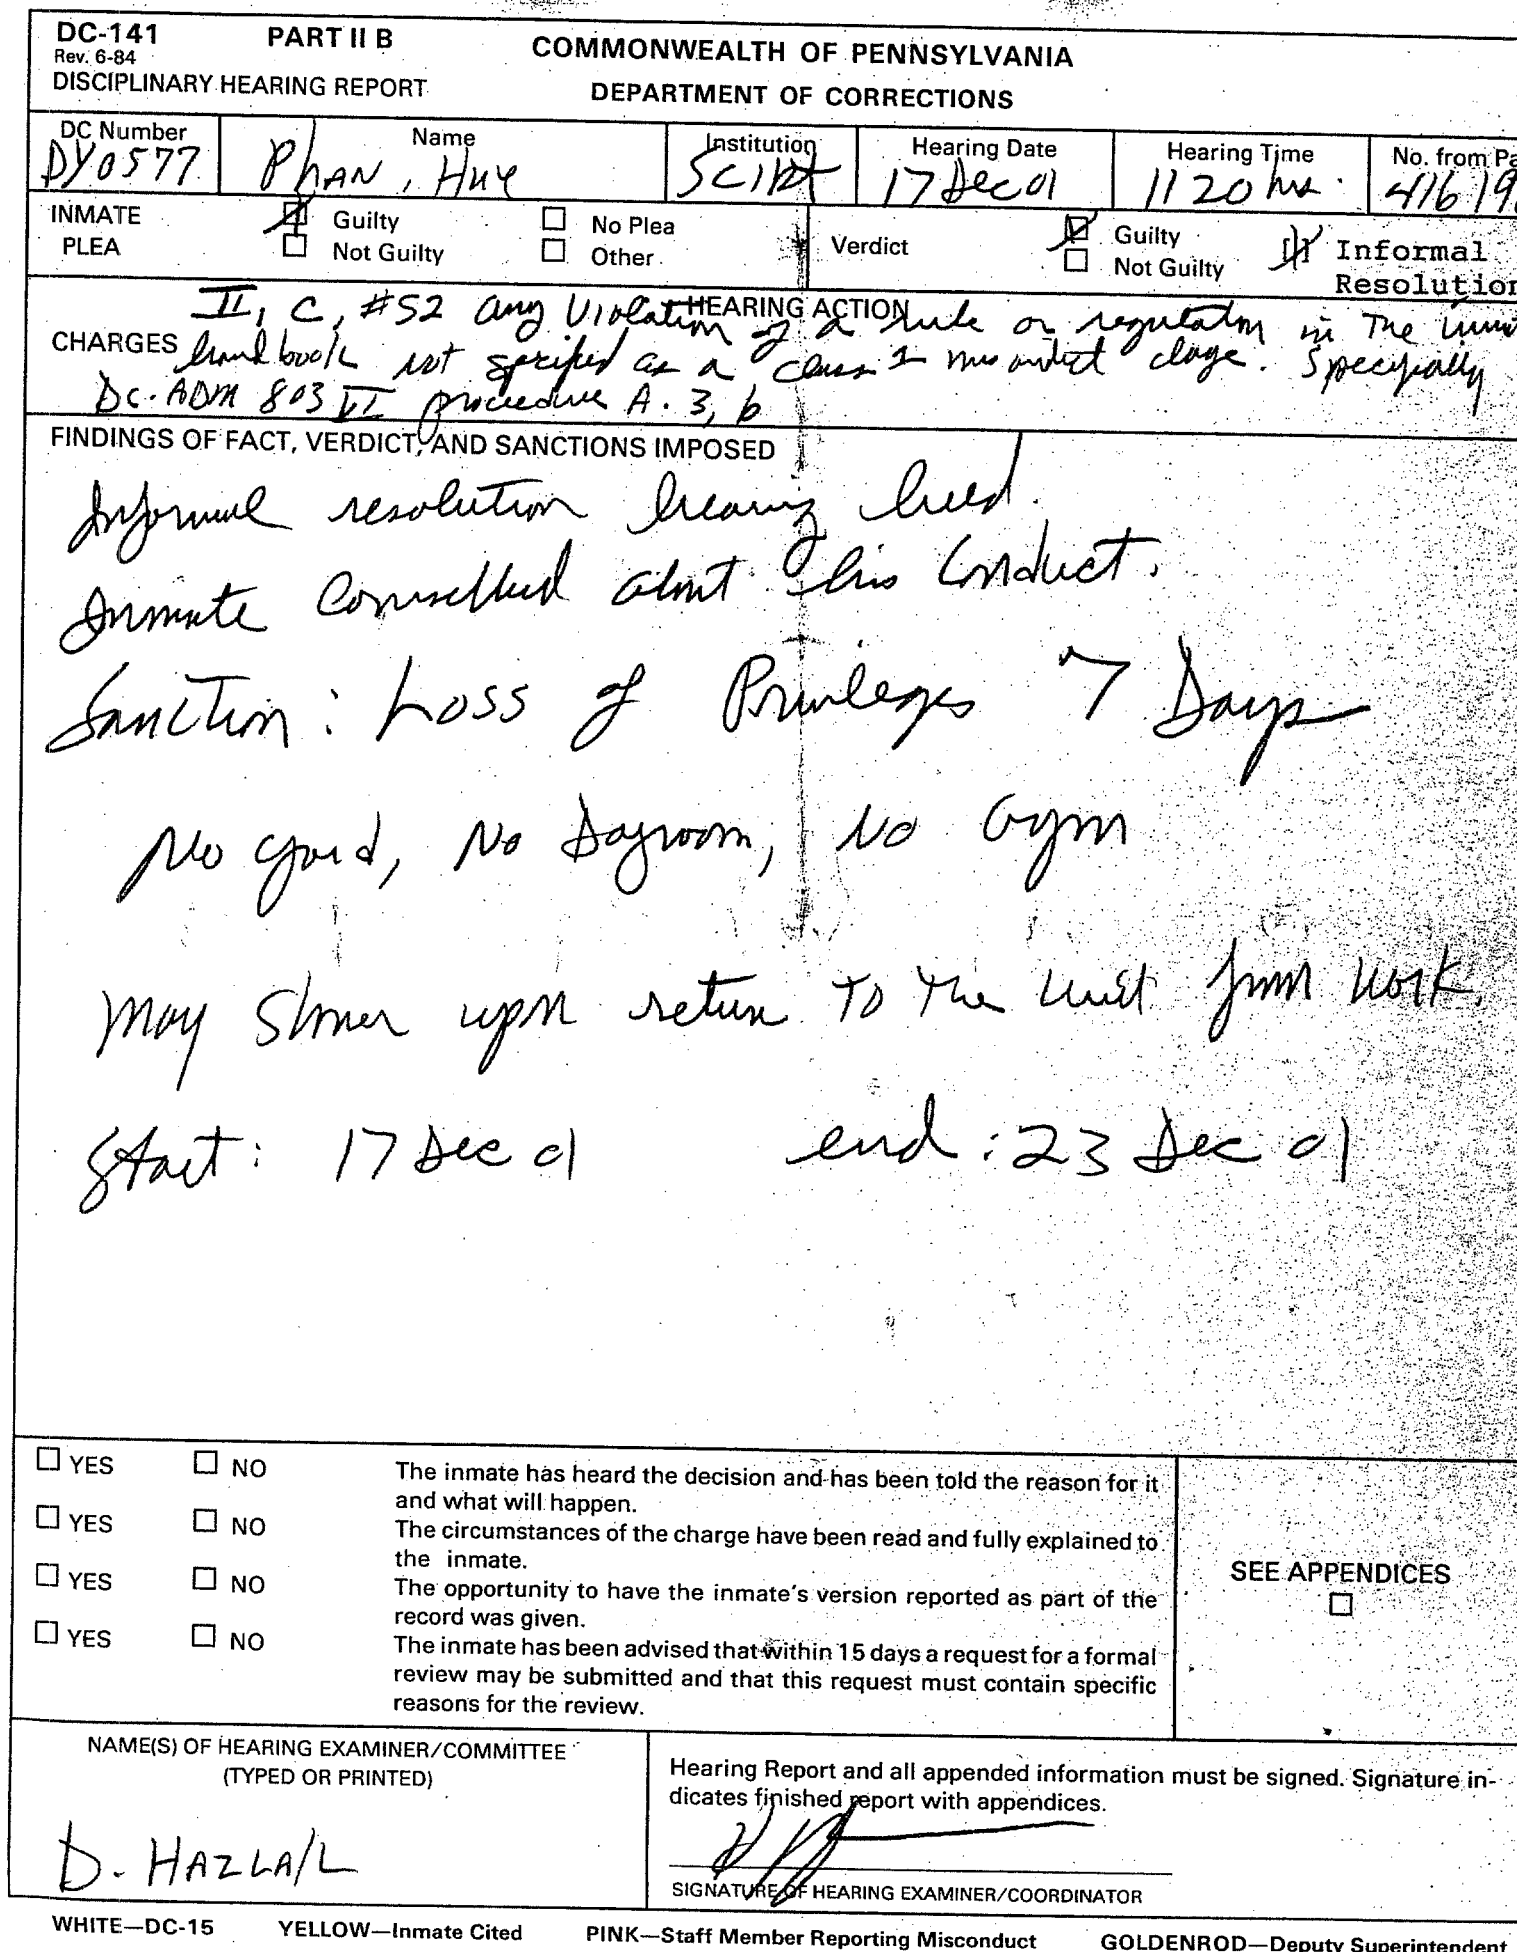 DC-141 PART II B COMMONWEALTH OF PENNSYLVANIA
Rev. 6-84
DISCIPLINARY HEARING REPORT DEPARTMENT OF CORRECTIONS
DC Number Name Institution Hearing Date Hearing Time No. from
DY0577 Phan, Huy 17 Dec 01 1120 hrs.
INMATE PLEA Guilty No Plea Verdict Guilty Informal
Not Guilty Other Not Guilty Resolution
HEARING ACTION
II, C, #52 any violation of a rule or regulation in The
CHARGES handbook not specified as a class 1 misconduct Specifically
DC-ADM 803 VI procedure A. 3, b
FINDINGS OF FACT, VERDICT, AND SANCTIONS IMPOSED
Informal resolution hearing held.
Inmate Counselled about his Conduct.
Sanction: Loss of Privileges 7 Days
No yard, No Dayroom, No Gym
May Shower upon return To The Unit from work.
Start: 17 Dec 01 end: 23 Dec 01
YES NO The inmate has heard the decision and has been told the reason for it
and what will happen.
YES NO The circumstances of the charge have been read and fully explained to
the inmate.
YES NO The opportunity to have the inmate's version reported as part of the
record was given.
YES NO The inmate has been advised that within 15 days a request for a formal
review may be submitted and that this request must contain specific
reasons for the review.
SEE APPENDICES
NAME(S) OF HEARING EXAMINER/COMMITTEE
(TYPED OR PRINTED)
D. HAZLA/L
Hearing Report and all appended information must be signed. Signature in-
dicates finished report with appendices.
SIGNATURE OF HEARING EXAMINER/COORDINATOR
WHITE—DC-15 YELLOW—Inmate Cited PINK—Staff Member Reporting Misconduct GOLDENROD—Deputy Superintendent